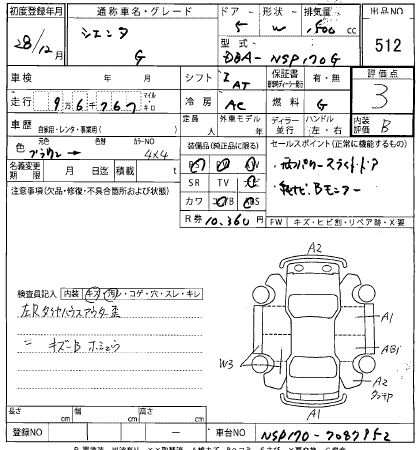 初度登録年月 通称車名・グレード ドア 形状 排気量 出品NO
28/12月 シエンタ G 5 W 1,500 cc 512
型式 DBA-NSP170G
車検 年 月 シフト I AT 保証書 有・無 評価点 3
走行 9万6千767 マイル キロ 冷房 AC 燃料 G 内装評価 B
車歴 自家用・レンタ・事業用( ) 定員 人 外車モデル 年 ディーラー 並行 ハンドル 左・右
色 元色 ブラウン 色替 カラーNO 4X4
装備品(純正品に限る) セールスポイント(正常に機能するもの)
名義変更期限 月 日迄 積載 t
SR TV
カワ
R券 10,360円
・純ナビ Bモニター
注意事項(欠品・修復・不具合箇所および状態)
FW キズ・ヒビ割・リペア跡・X要
検査員記入 内装 キズ・汚レ・コゲ・穴・スレ・キレ
左Rタイヤハウスアウター歪
〃 キズ-B ホシュウ
A2
A1
AB1
W3
A2
A1
長さ cm 幅 cm 高さ cm
登録NO ー 車台NO NSP170-7087952